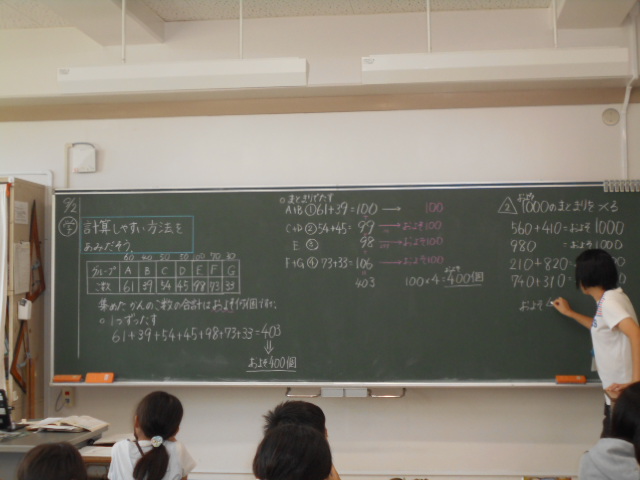 9/2
㋕ 計算しやすい方法を
あみだそう。
60 40 50 50 100 70 30
グループ A B C D E F G
こ数 61 39 54 45 98 73 33
集めた かんのこ数の合計はおよそ何個ですか。
○ 1つずつたす
61+39+54+45+98+73+33=403
⇓
およそ400個
○まとまりでたす
A+B ① 61+39=100 → 100
C+D ② 54+45= 99 → およそ100
E ③ 98 → およそ100
F+G ④ 73+33= 106 → およそ100
403 100×4=400個
およそ
およそ
△2 1000のまとまりをつくる
560+410=およそ1000
980 =およそ1000
210+820
740+310
およそ